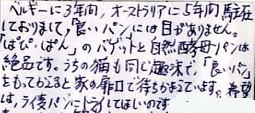 ベルギーに3年間、オーストラリアに5年間駐在
しておりまして、「良いパン」には目がありません。
「ぱぴ・ぱん」のバゲットと自然酵母パンは
絶品です。うちの猫も同じ趣味で、「良いパン」
をもってかえると家の扉口で待ちかまえています。希望
は、ライ麦パンにトライしてほしいです